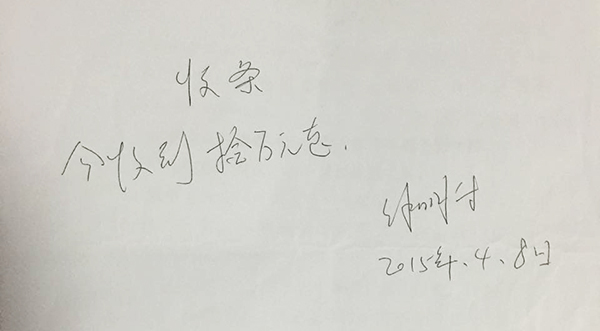 收条
今收到拾万元
2015年.4.8日